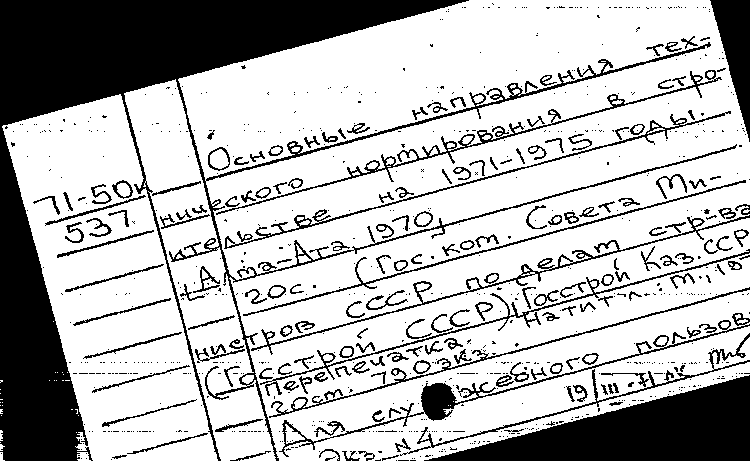 71-50к
537
Основные направления тех-
нического нормирования в стро-
ительстве на 1971-1975 годы.
Алма-Ата, 1970,
20с. (Гос. ком. Совета Ми-
нистров СССР по делам стр-ва
(Госстрой СССР); Госстрой Каз.ССР
Перепечатка. На тит л.: М., 19
20см. 790экз.
Для служебного пользов
Экз. N4.
19/III-71